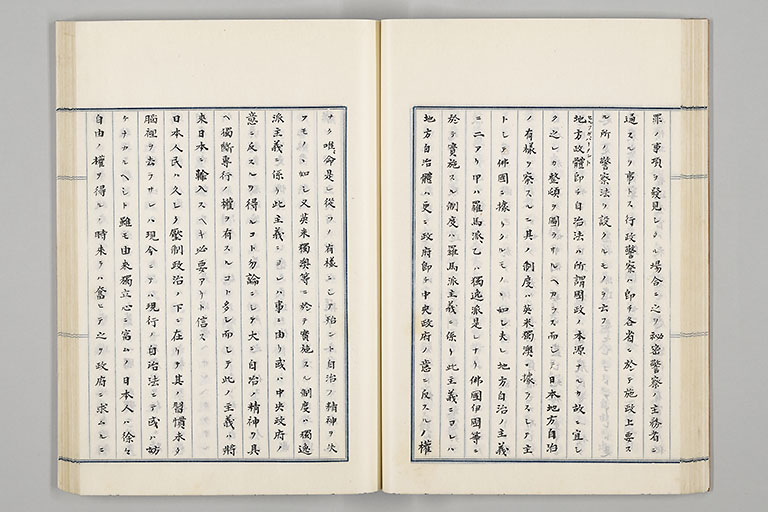 罪ノ事項ヲ發見シタル場合ニ之ヲ秘密警察ノ主務者ニ
通スルヲ事トス行政警察ハ即チ各省ニ於テ施政上要ス
ル所ノ警察法ヲ設クルモノヲ云フ
地方政體即チ自治法ハ所謂國政ノ本源ナルカ故ニ宜シ
ク之レカ整頓ヲ圖ラサルヘカラス而シテ日本地方自治
ノ有樣ヲ察スルニ其ノ制度ハ英米獨澳ニ據ラスシテ主
トシテ佛國ニ據リタルモノヽ如シ夫レ地方自治ノ主義
ニ二アリ甲ハ羅馬派乙ハ獨逸派是レナリ佛國伊國等ニ
於テ實施スル制度ハ羅馬派主義ニ係リ此主義ニヨレハ
地方自治體ハ更ニ政府即チ中央政府ノ意ニ反スルノ權
ナク唯命是レ從フノ有樣ニシテ殆ント自治ノ精神ヲ欠
クモノヽ如シ又英米獨澳等ニ於テ實施スル制度ハ獨逸
派主義ニ係リ此主義ニヨレハ事ニ由リ或ハ中央政府ノ
意ニ反スルヲ得ルコト勿論ニシテ大ニ自治ノ精神ヲ具
ヘ獨斷專行ノ權ヲ有スルコト多シ而シテ此ノ主義ハ將
來日本ニ輸入スヘキ必要アリト信ス
日本人民ハ久シク壓制政治ノ下ニ在リテ其ノ習慣未タ
腦裡ヲ去ラサレハ現今ニテハ現行ノ自治法ニテ或ハ妨
ケナカルヘシト雖モ由來獨立心ニ富ムノ日本人ハ徐々
自由ノ權ヲ得ルノ時來ラハ奮ヒテ之ヲ政府ニ求ムルニ